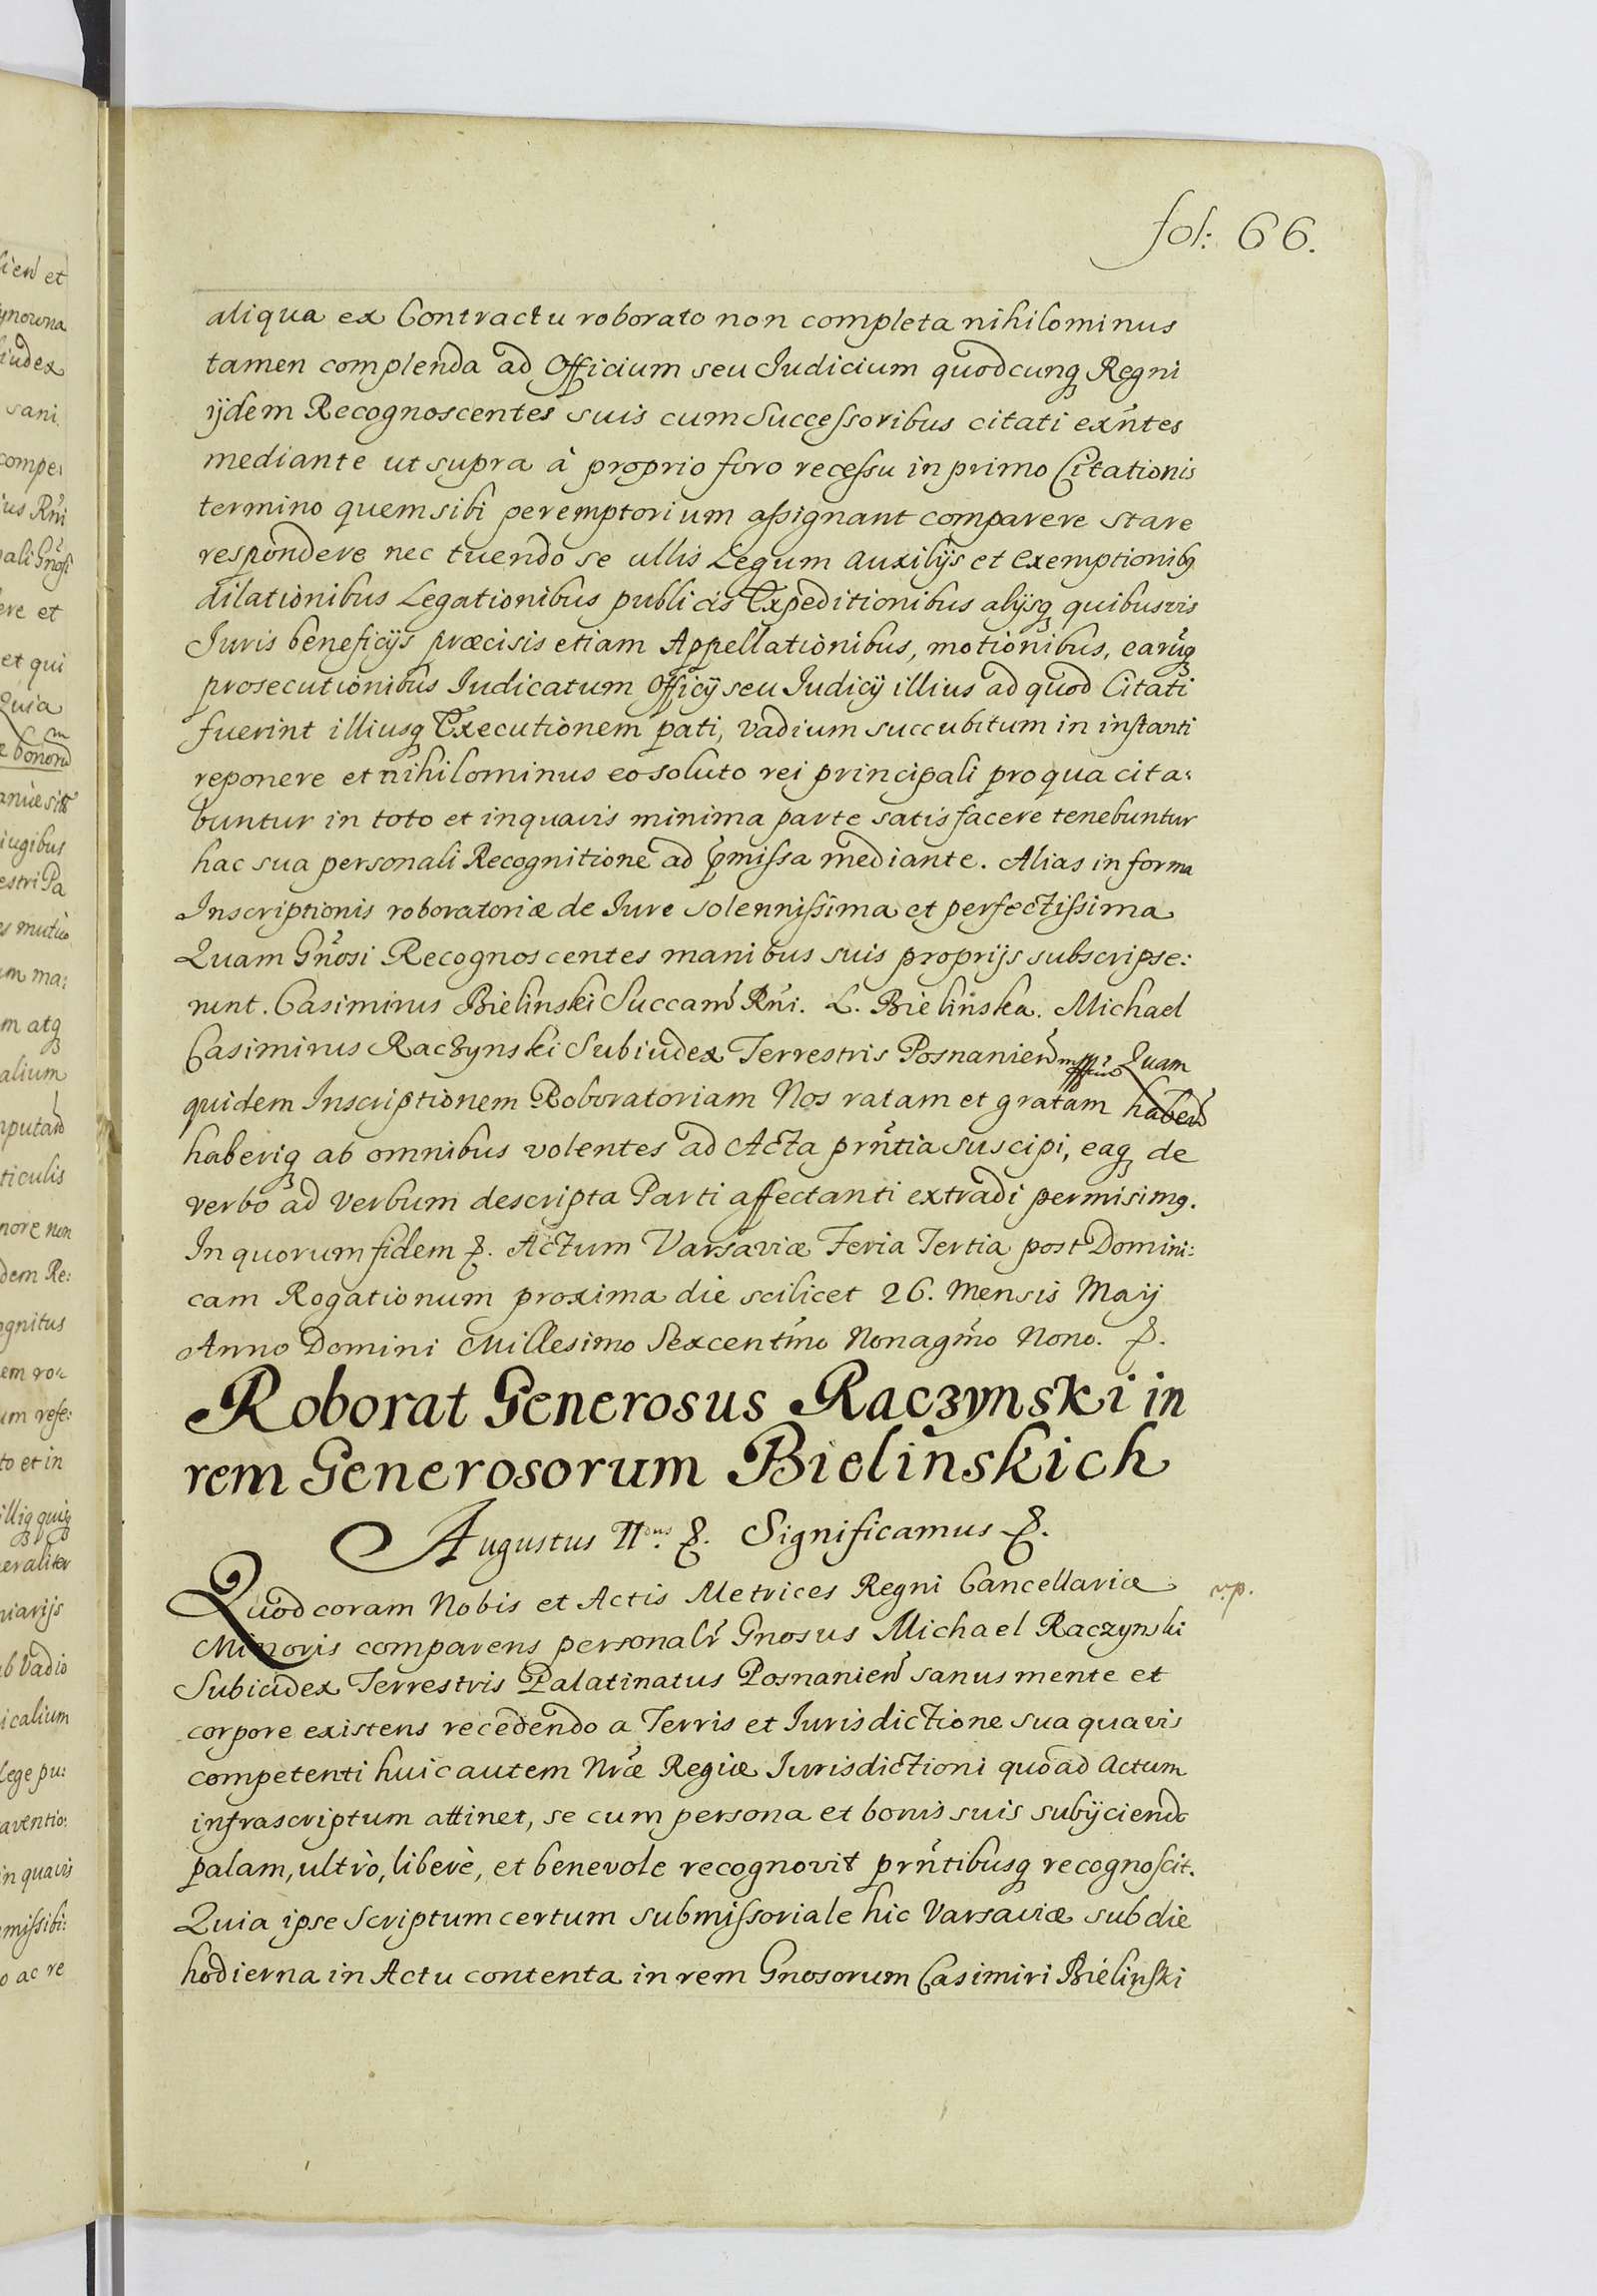 fol: 66.
aliqua ex Contractu roborato non completa nihilominus
tamen complenda ad Officium seu Iudicium quodcunq Regni
ijdem Recognoscentes suis cum Successoribus citati exn̄tes
mediante ut supra à proprio foro recessu in primo Citationis
termino quem sibi peremptorium assignant comparere stare
respondere nec tuendo se ullis Legum auxilijs et exemptionibq
dilationibus Legationibus publicis Expeditionibus alijsq quibusvis
Iuris beneficijs præcisis etiam Appellationibus, motionibus, earūq
prosecutionibus Iudicatum Officij seu Iudicij illius ad quod Citati
fuerint illiusq Executionem pati, vadium succubitum in instanti
reponere et nihilominus eo soluto rei principali pro qua cita:
buntur in toto et in quavis minima parte satisfacere tenebuntur
hac sua personali Recognitione ad p̄missa mediante. Alias in forma
Inscriptionis roboratoriæ de Iure solennissima et perfectissima
Quam Gn̄osi Recognoscentes manibus suis proprijs subscripse:
runt. Casimirus Bielinski Succam̄ Rn̄i. L. Bielinska. Michael
Casimirus Raczynski Subiudex Terrestris Posnanien̄ Quam
quidem Inscriptionem Roboratoriam Nos ratam et gratam haben̄
haberiq ab omnibus volentes ad Acta prn̄tia suscipi, eaq de
verbo ad verbum descripta Parti affectanti extradi permisimq.
In quorum fidem &. Actum Varsaviæ Feria Tertia post Domini:
cam Rogationum proxima die scilicet 26. Mensis Maij
Anno Domini Millesimo Sexcentm̄o Nonagm̄o Nono. &.
Roborat Generosus Raczynski in
rem Generosorum Bielinskich
Augustus II.dus &. Significamus &.
Quod coram Nobis et Actis Metrices Regni Cancellariæ
r.p.
Minoris comparens personalr̄ Gnosus Michael Raczynski
Subiudex Terrestris Palatinatus Posnanien̄ sanus mente et
corpore existens recedendo a Terris et Iurisdictione sua quavis
competenti huic autem Nr̄æ Regiæ Iurisdictioni quoad Actum
infrascriptum attinet, se cum persona et bonis suis subijciendo
palam, ultrò, liberè, et benevole recognovit prn̄tibusq recognoscit.
Quia ipse Scriptum certum submissoriale hic Varsaviæ sub die
hodierna in Actu contenta in rem Gnosorum Casimiri Bielinski